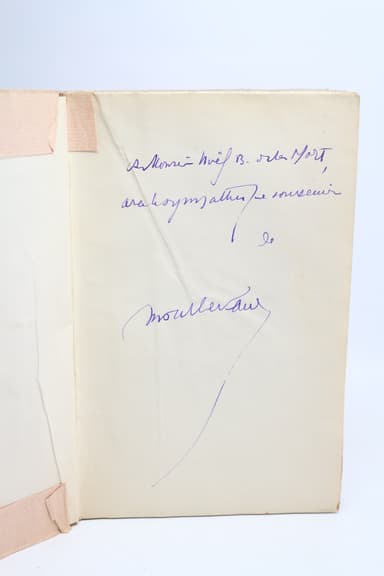 A Monsieur Noël B. de la Mort,
avec la sympathique souvenir
de
Montherlant